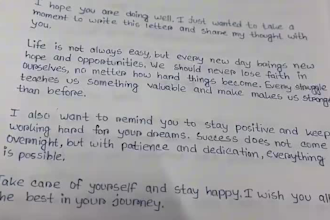 I hope you are doing well. I just wanted to take a
moment to write this letter and share my thought with
you.
Life is not always easy, but every new day brings new
hope and opportunities. We should never lose faith in
ourselves, no matter how hard things become. Every struggle
teaches us something valuable and make makes us stronge
than before.
I also want to remind you to stay positive and keep
working hard for your dreams. Success does not come
overnight, but with patience and dedication, everything
is possible.
Take care of yourself and stay happy. I wish you all
the best in your journey.